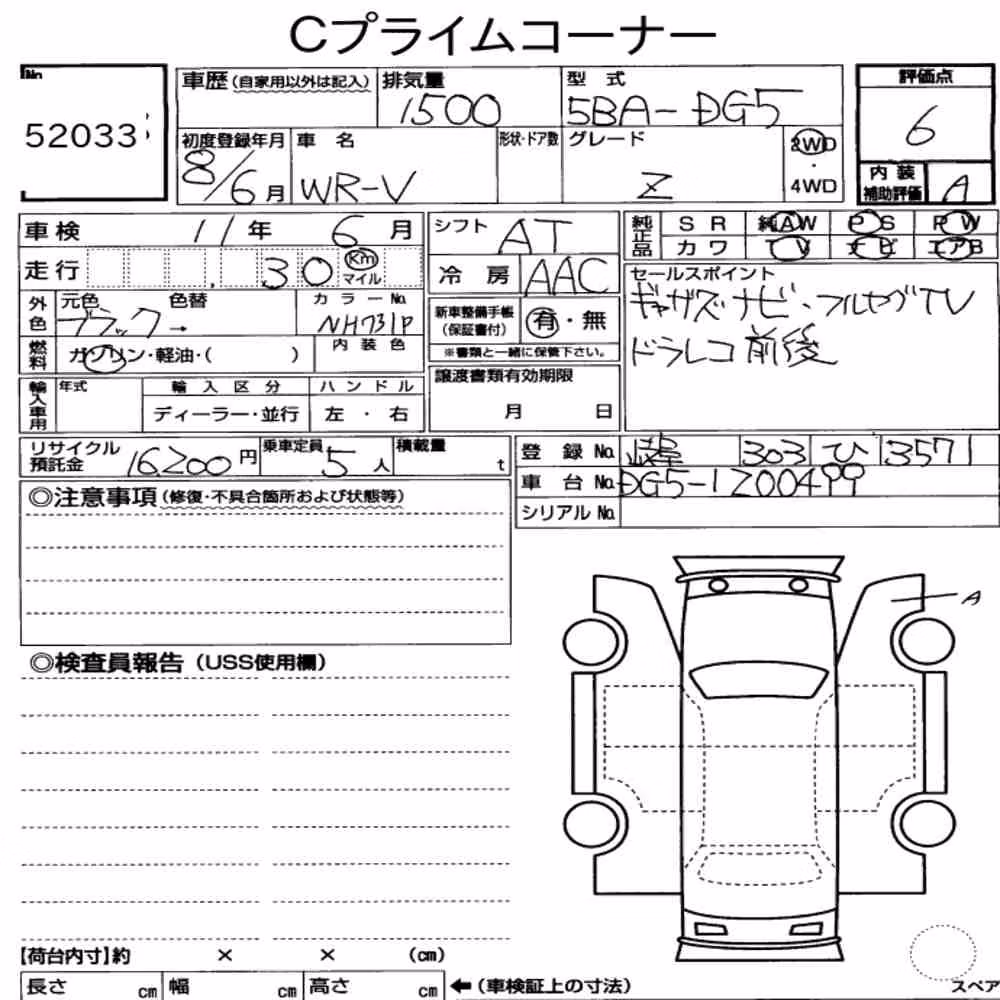 Cプライムコーナー
No.
52033
車歴(自家用以外は記入)
排気量
1500
型式
5BA-DG5
評価点
6
初度登録年月
8/6月
車名
WR-V
形状・ドア数
グレード
Z
2WD
・
4WD
内装
補助評価
A
車検 11年 6月
シフト AT
純正品
SR 純AW PS PW
カワ TV ナビ エアB
走行 30 Km マイル
冷房 AAC
セールスポイント
ギャザズナビ・フルセグTV
ドラレコ前後
外色
元色 ブラック → 色替
カラーNo.
NH731P
新車整備手帳
(保証書付)
有・無
※書類と一緒に保管下さい。
燃料
ガソリン・軽油・( )
内装色
譲渡書類有効期限
月 日
輸入車用
年式
輸入区分
ディーラー・並行
ハンドル
左・右
リサイクル
預託金
16,200円
乗車定員
5人
積載量
t
登録No. 岐阜 303 ひ 3571
車台No. DG5-1200499
シリアルNo.
◎注意事項(修復・不具合箇所および状態等)
A
◎検査員報告(USS使用欄)
【荷台内寸】約 × × (cm)
長さ cm 幅 cm 高さ cm ←(車検証上の寸法)
スペア